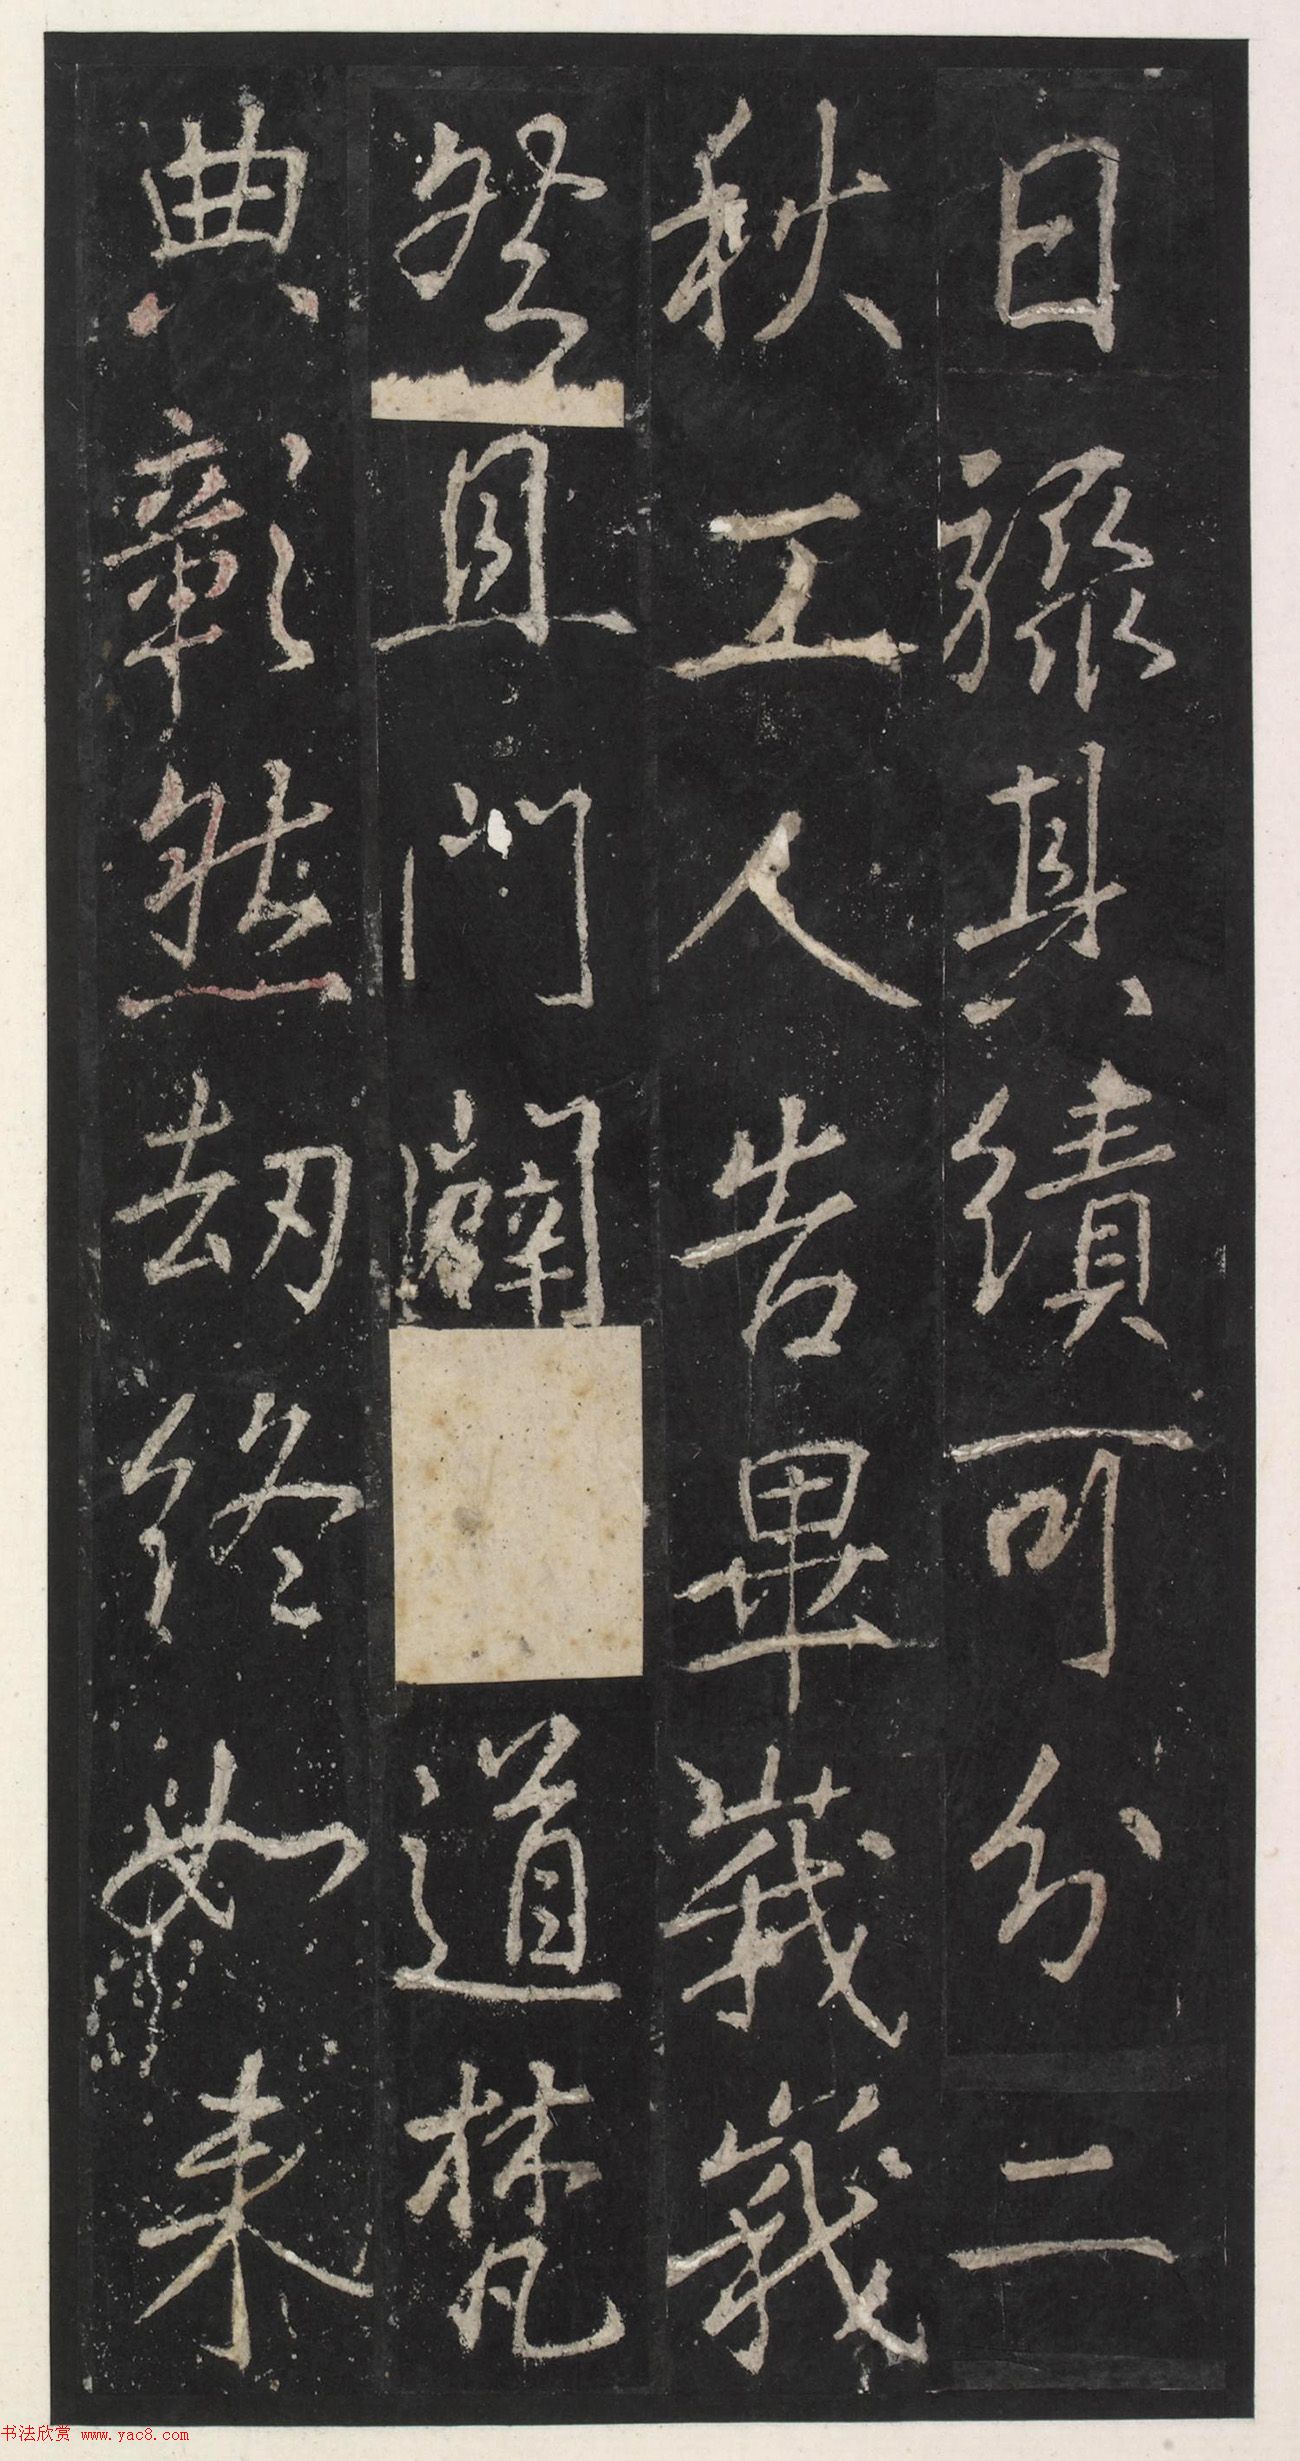 日其績可分二
秋工人告畢峩峩
且門闢道梵
典彰然劫終如來
书法欣赏 www.yac8.com